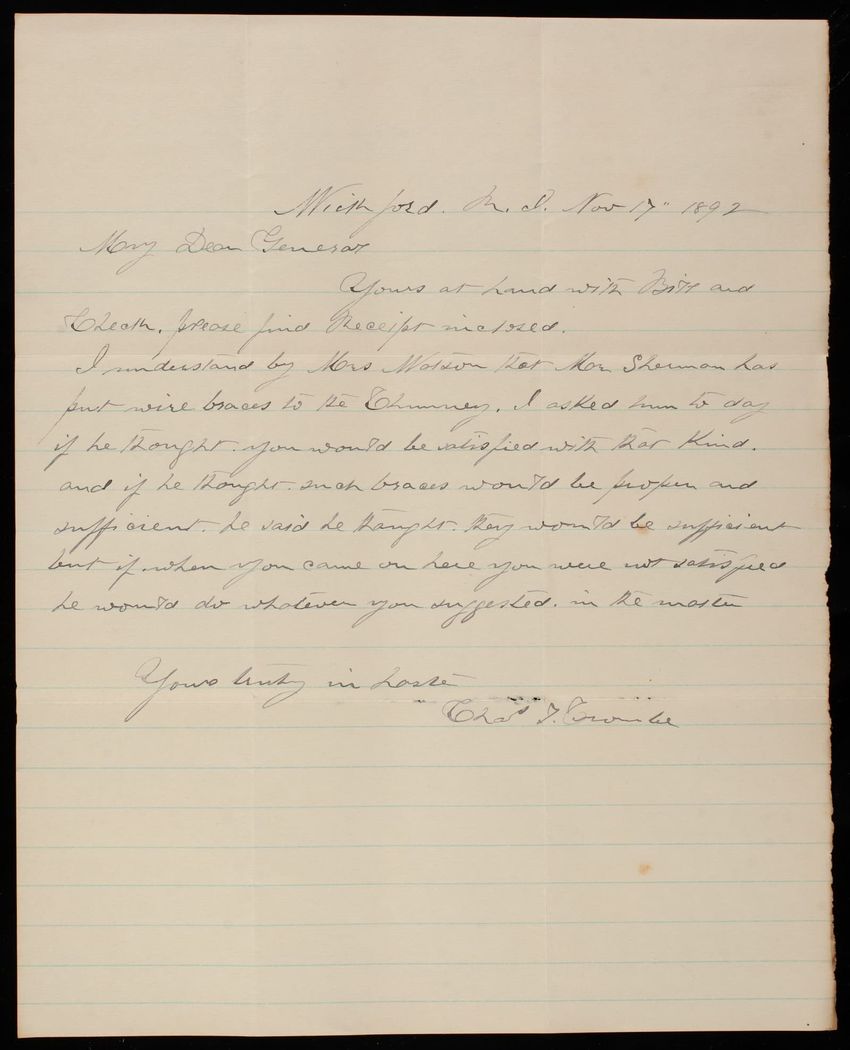 Wickford. R. I. Nov 17" 1892
My Dear General
Yours at hand with Bill and
Check. please find Receipt inclosed.
I understand by Mrs Watson that Mr Sherman has
put wire braces to the Chimney. I asked him to day
if he thought. you would be satisfied with that Kind.
and if he thought. such braces would be proper and
sufficient. he said he thought. they would be sufficient
but if. when you came on here you were not satisfied
he would do whatever you suggested. in the matter
Yours truly in haste
Chas T. Crombe